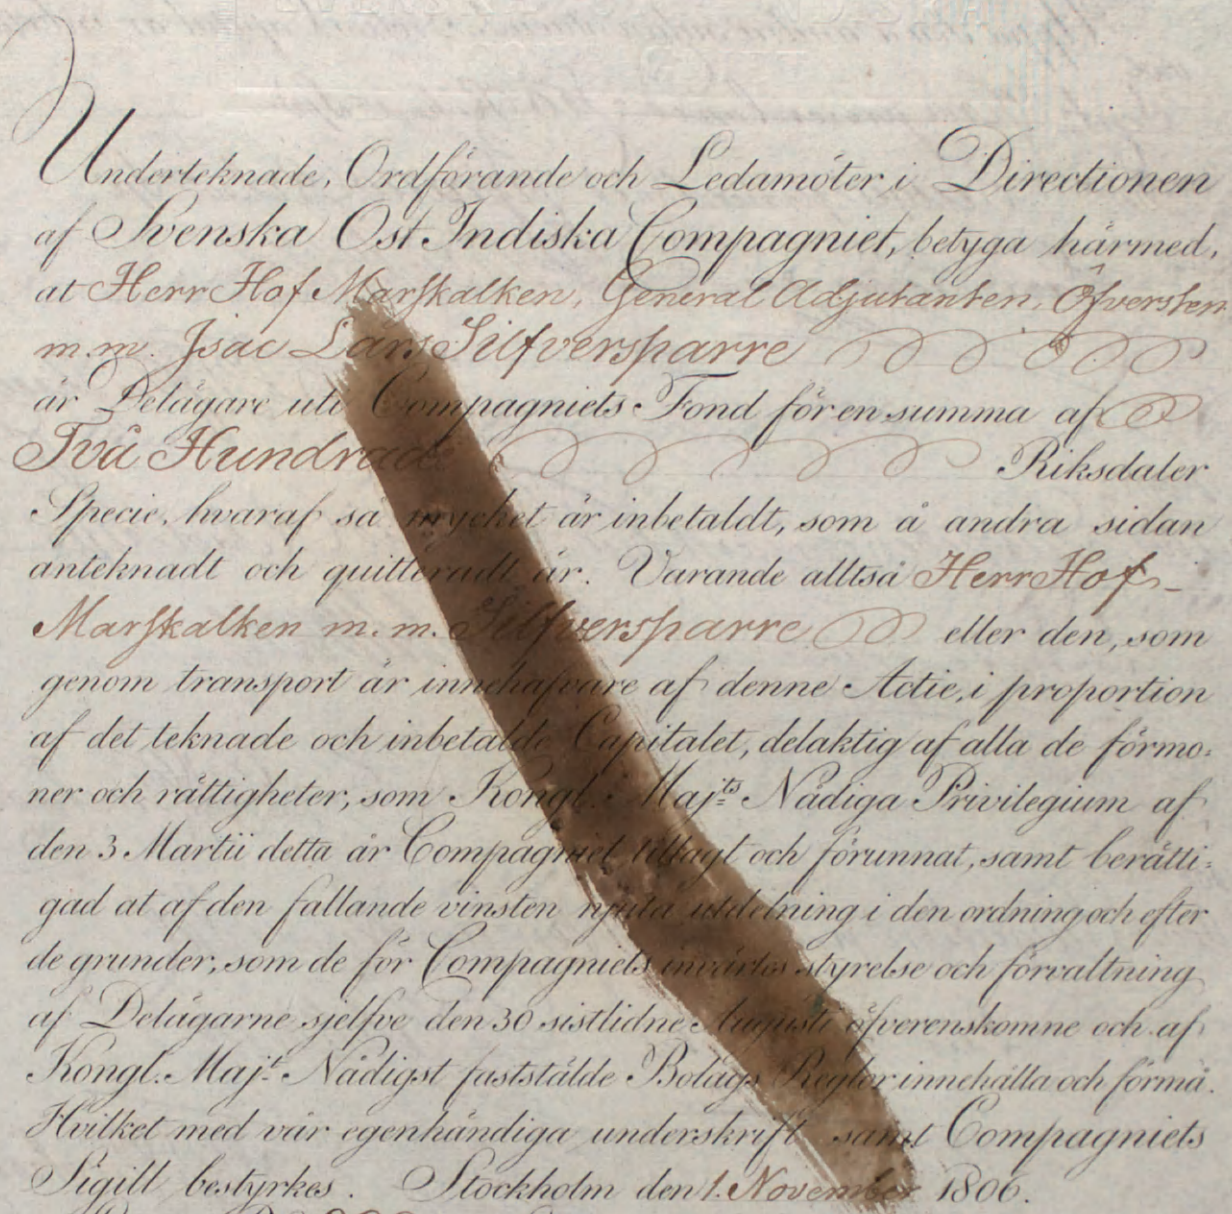 Underteknade, Ordförande och Ledamöter i Directionen
af Svenska Ost Indiska Compagniet, betyga härmed,
at Herr Hof Marskalken, General Adjutanten, Öfversten
m.m. Isac Lars Silfversparre
är Delägare uti Compagniets Fond för en summa af
Två Hundrade Riksdaler
Specie, hvaraf så mycket är inbetaldt, som å andra sidan
anteknadt och quitteradt är. Varande altså Herr Hof-
Marskalken m.m. Silfversparre eller den, som
genom transport är innehafvare af denne Actie, i proportion
af det teknade och inbetalde Capitalet, delaktig af alla de förmo-
ner och rättigheter, som Kongl. Maj:ts Nådiga Privilegium af
den 3 Martii detta år Compagniet tillagt och förunnat, samt berätti-
gad at af den fallande vinsten njuta utdelning i den ordning och efter
de grunder, som de för Compagniets invärtes styrelse och förvaltning
af Delägarne sjelfve den 30 sistlidne Augusti öfverenskomne och af
Kongl. Maj:t Nådigst faststälde Bolags Reglor innehålla och förmå.
Hvilket med vår egenhändiga underskrift samt Compagniets
Sigill bestyrkes. Stockholm den 1. November 1806.